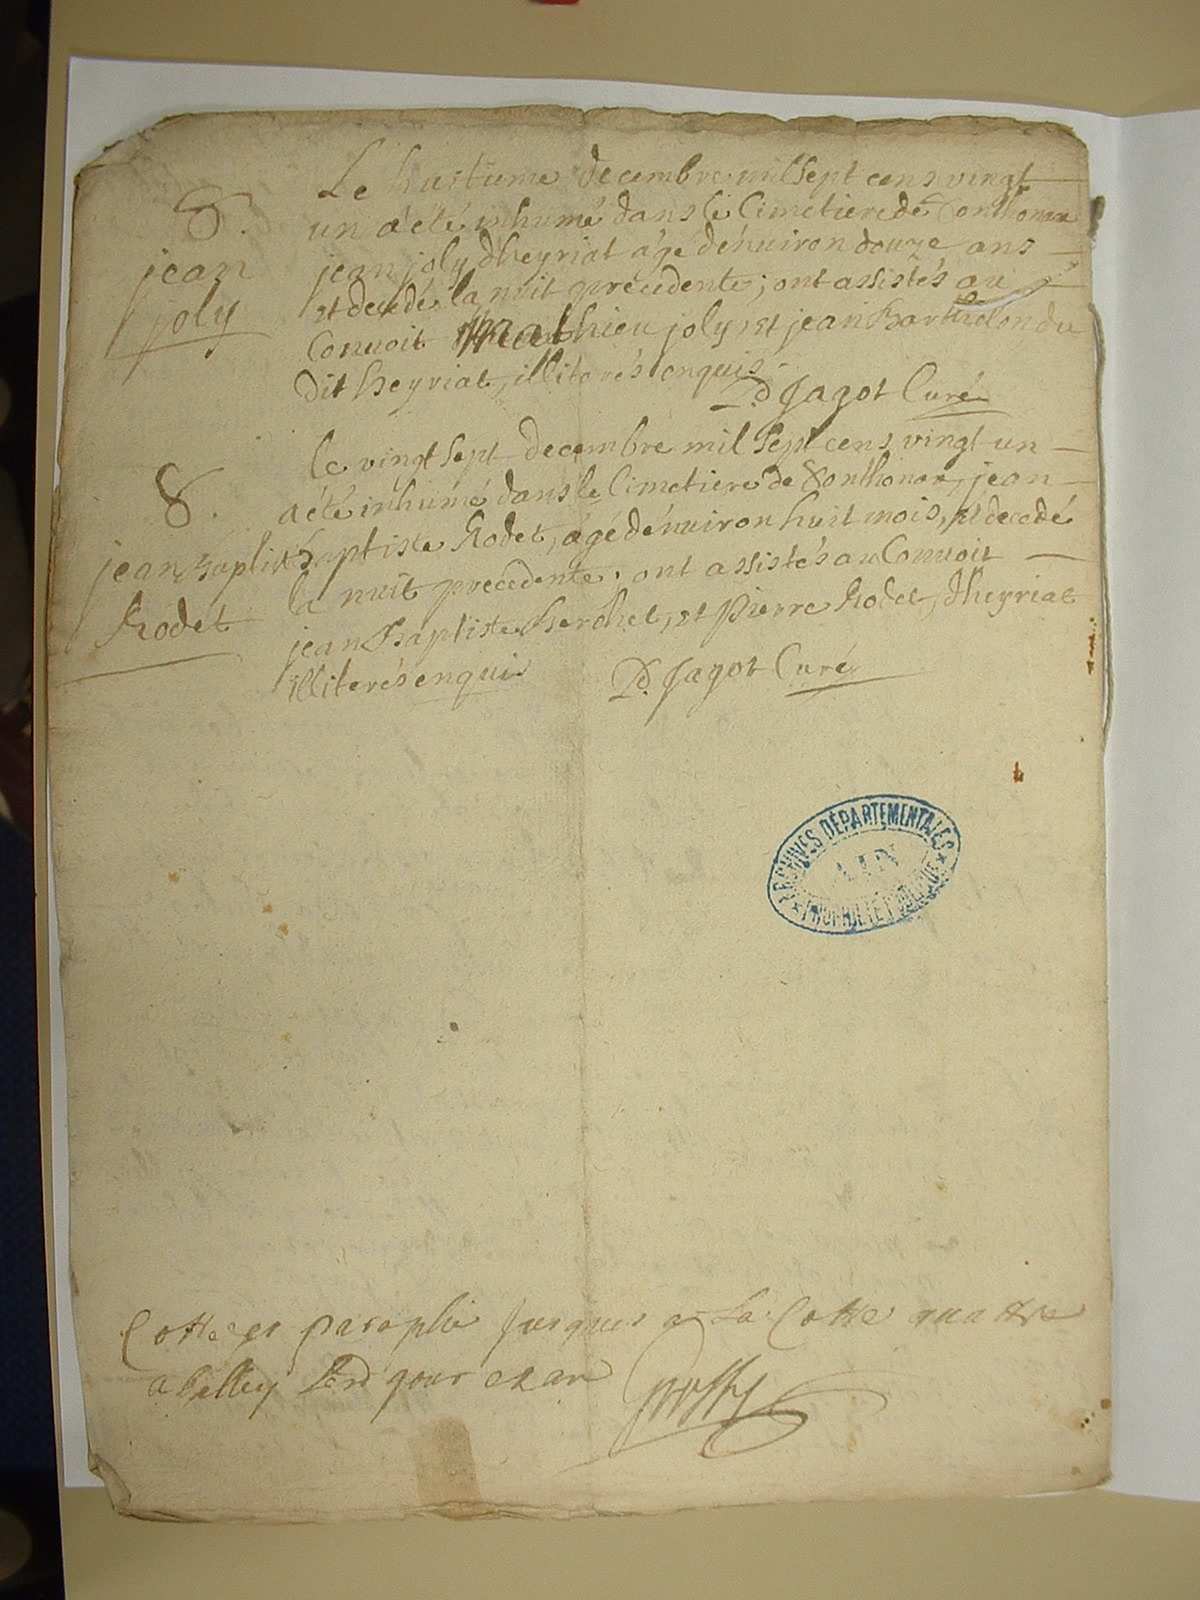 8.
jean
joly
Le huitiéme decembre mil sept cens vingt
un a été inhumé dans le Cimetiere de Conthonax
jean joly dheyriat agé dénuiron douze ans
et decedé la nuit precedente ; ont assistés au
Conuoit Mathieu joly et jean Barthelon du
dit heyriat, illiterés enquis.
D. Jagot Curé
8.
jean baptiste
Rodet
le vingt sept decembre mil sept cens vingt un
a été inhumé dans le Cimetiere de Conthonax, jean
baptiste Rodet, agé dénuiron huit mois, et decedé
la nuit precedente ; ont assistés au Conuoit
jean Baptiste Berchet, et Pierre Rodet, dheyriat
illiterés enquis
D. Jagot Curé
ARCHIVES DÉPARTEMENTALES
AIN
PROPRIÉTÉ PUBLIQUE
Cotte et paraphé jusques a La Cotte quattre
a Belley jour et an